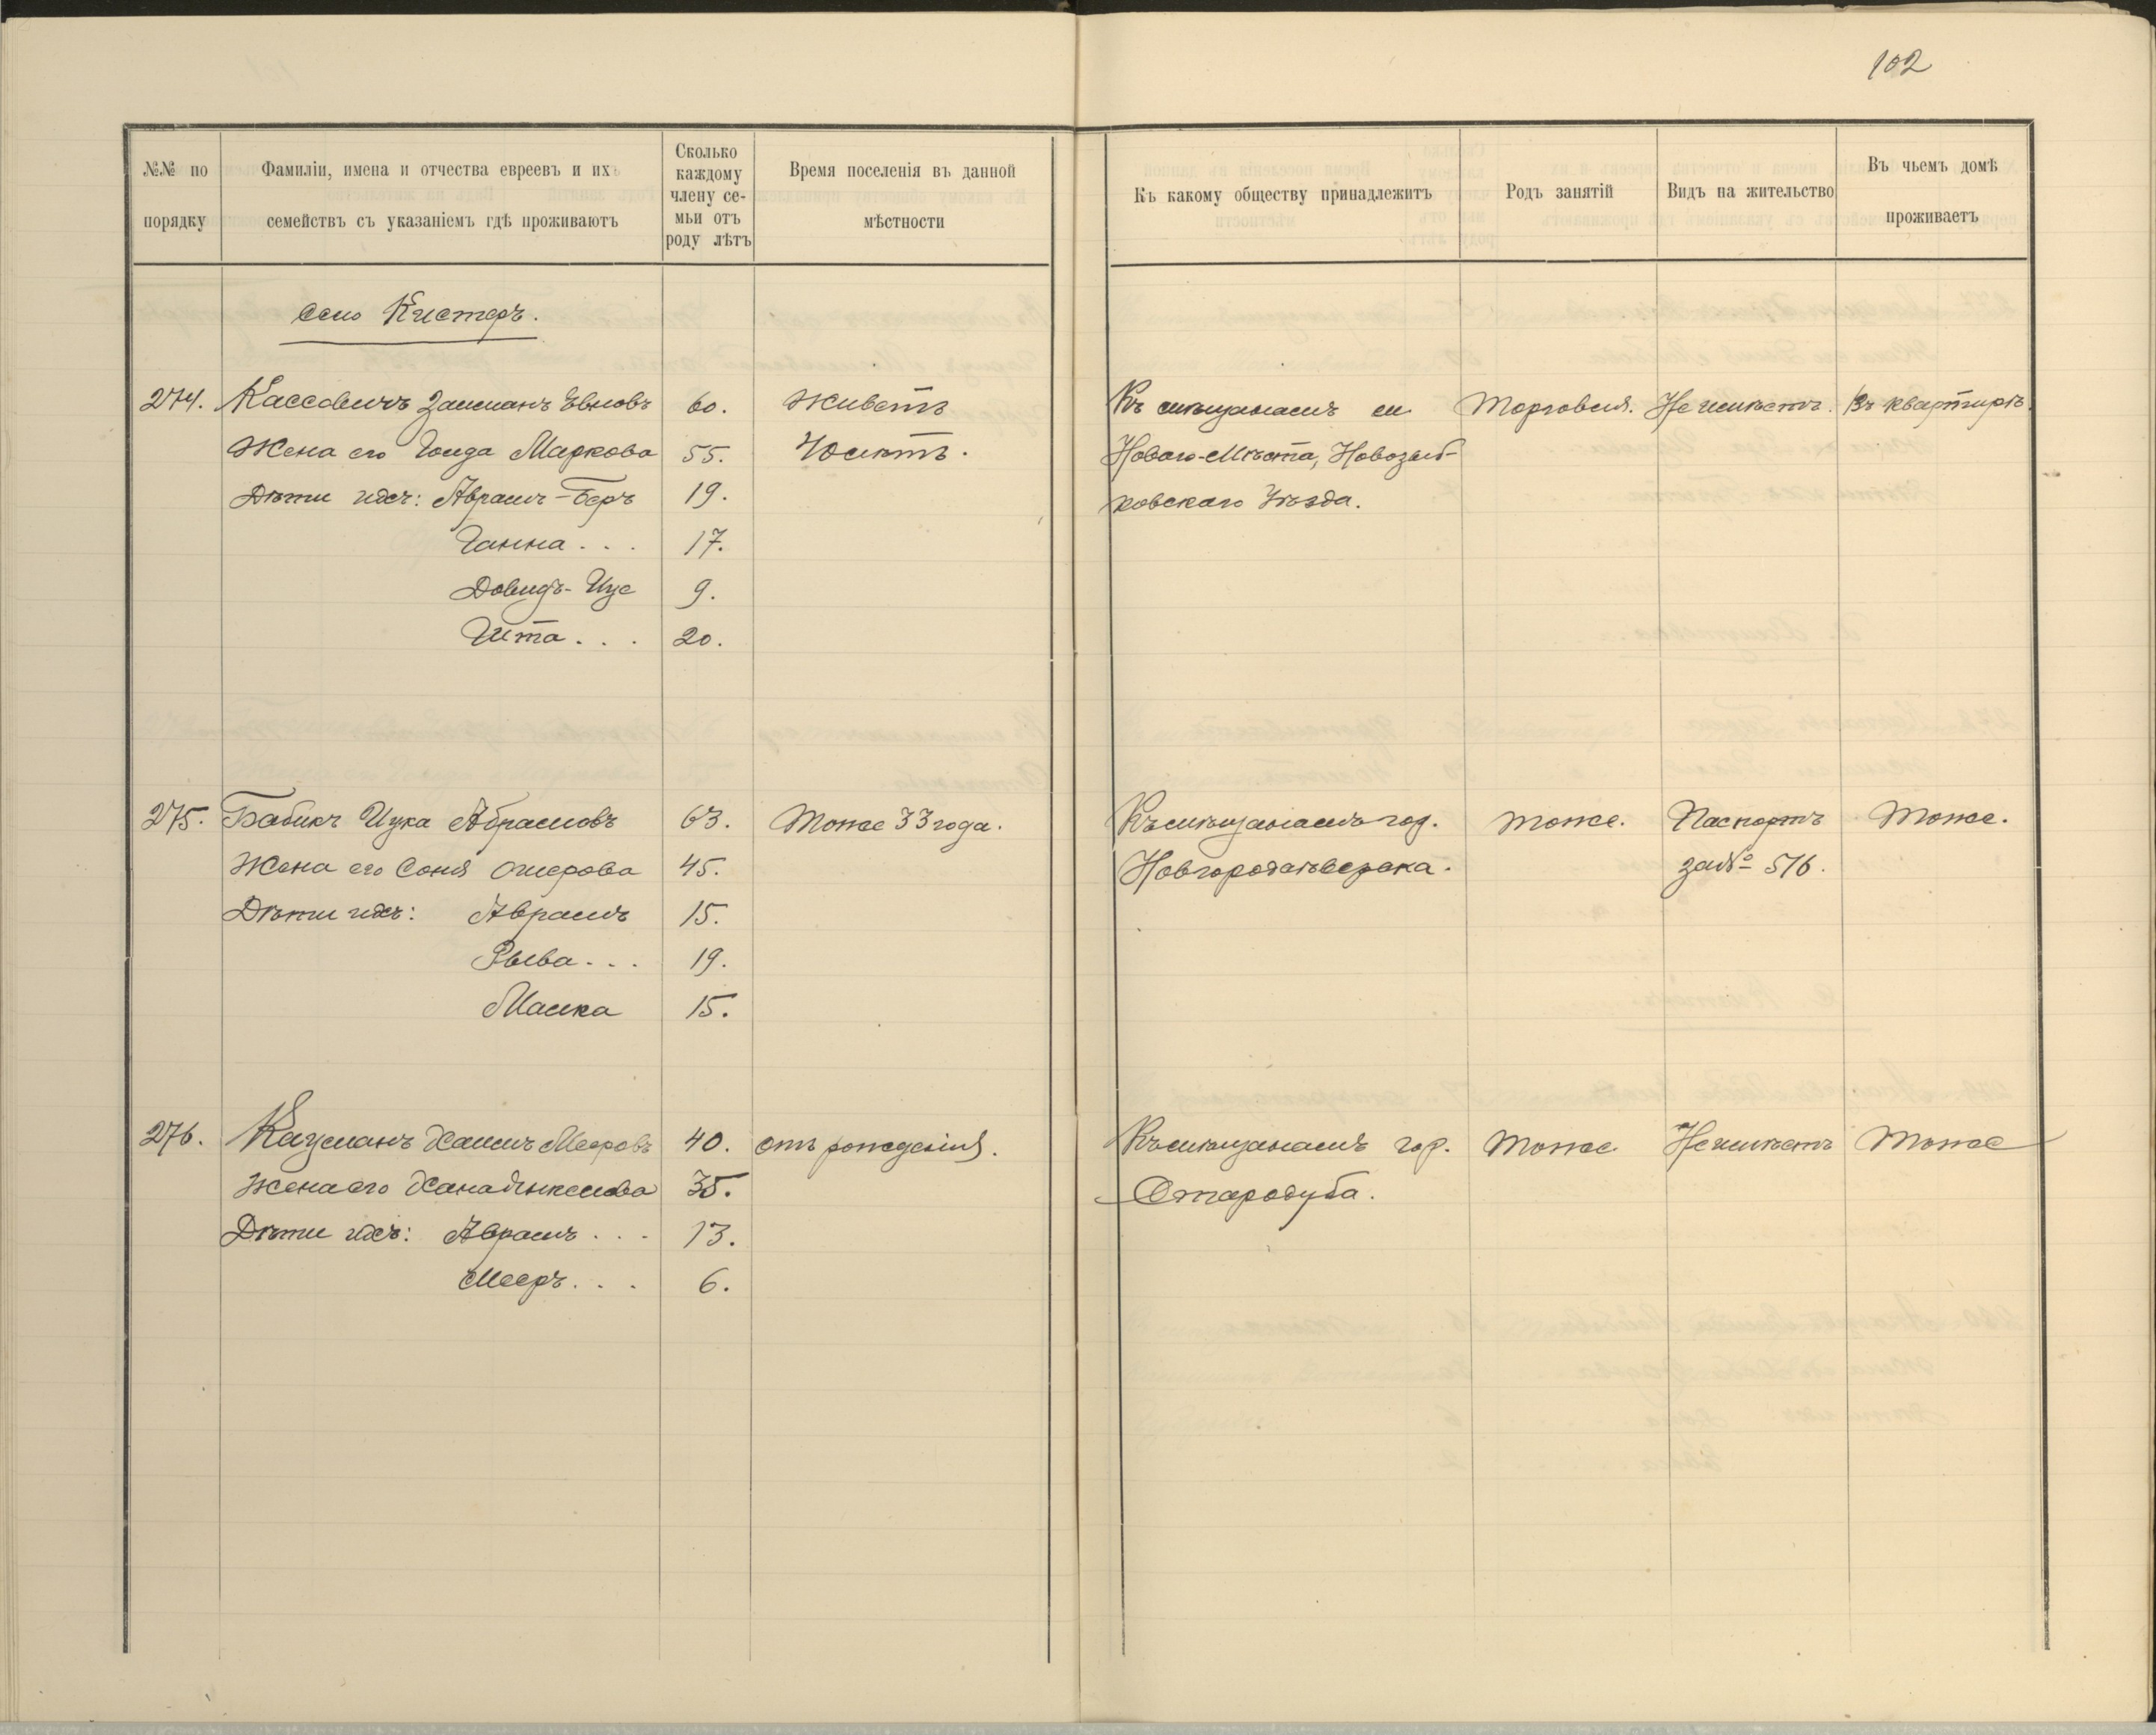 102
№№ по порядку
Фамиліи, имена и отчества евреевъ и ихъ семействъ съ указаніемъ гдѣ проживаютъ
Сколько каждому члену семьи отъ роду лѣтъ
Время поселенія въ данной мѣстности
Къ какому обществу принадлежитъ
Родъ занятій
Видъ на жительство
Въ чьемъ домѣ проживаетъ
село Кистеръ.
274. Кассовичъ Залманъ 60. Живетъ Къ мѣщанамъ м. Торговля. Не имѣетъ. Въ квартирѣ.
Жена его Голда Маркова 55. 40 лѣтъ. Новаго-Мѣста, Новозыб-
Дѣти ихъ: Аврамъ-Беръ 19. ковскаго Уѣзда.
Ганна . . . 17.
Довидъ- 9.
Гита . . . 20.
275. Бабикъ Ицка Абрамовъ 63. Тоже 33 года. Къ мѣщанамъ гор. тоже. Паспортъ Тоже.
Жена его Соня Ошерова 45. Новгородсѣверска. за № 516.
Дѣти ихъ: Аврамъ 15.
Рыва . . . 19.
Малка 15.
276. Кацманъ Хаимъ Мееровъ 40. отъ рожденія. Къ мѣщанамъ гор. Тоже Не имѣетъ Тоже
Жена его Хана 35. Стародуба.
Дѣти ихъ: Аврамъ . . . 13.
Мееръ . . . 6.